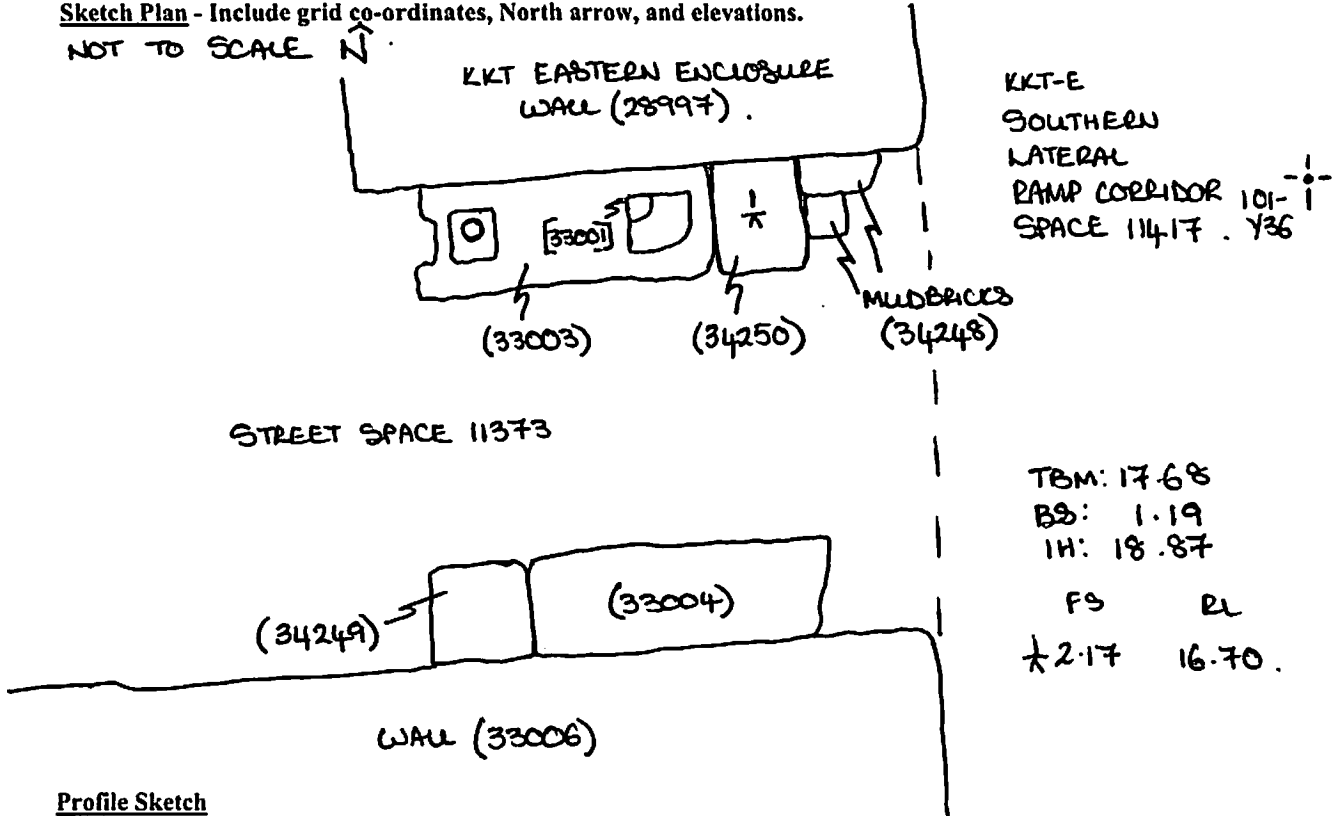 Sketch Plan - Include grid co-ordinates, North arrow, and elevations.
NOT TO SCALE N
KKT EASTERN ENCLOSURE
WALL (28997).
KKT-E
SOUTHERN
LATERAL
RAMP CORRIDOR
SPACE 11417.
101-
Y36
[33001]
MUDBRICKS
(34248)
(33003)
(34250)
STREET SPACE 11373
TBM: 17.68
BS: 1.19
IH: 18.87
FS RL
2.17 16.70.
(34249)
(33004)
WALL (33006)
Profile Sketch